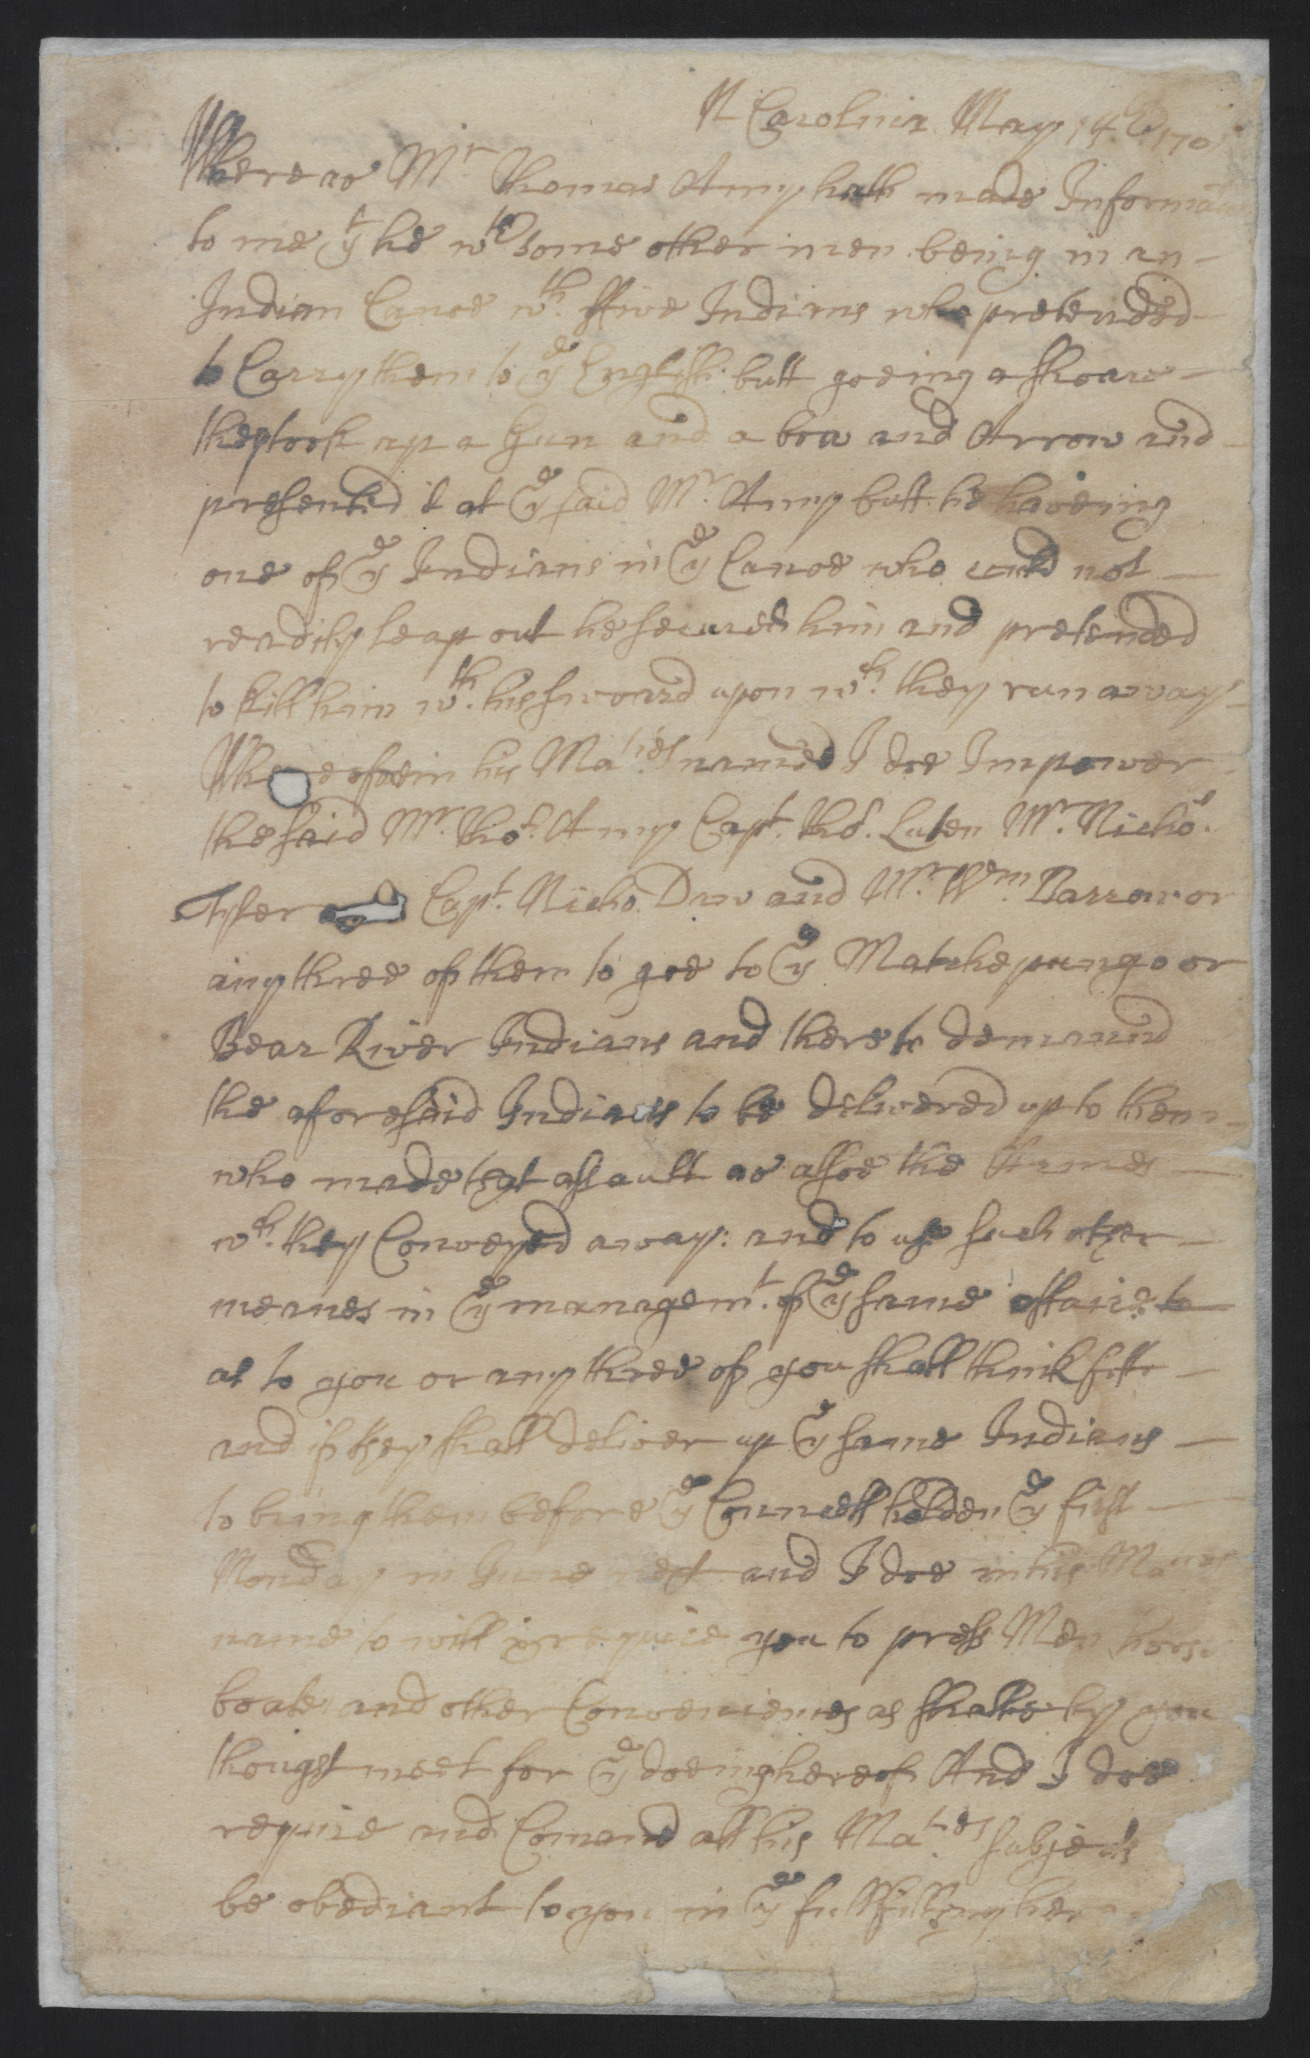 N Carolina May 14th 170
Whereas Mr Thomas Amy hath made Informa
to me yt he wth some other men being in an
Indian Canoe wth. ffive Indians who pretended
to Carry them to ye English butt goeing a shoare
they took up a Gun and a bow and Arrow and
presented it at ye said Mr. Amy butt he haveing
one of ye Indians in ye Canoe who could not
readily leap out he secured him and pretended
to kill him wth. his sword upon wch. they run away
Wherefore in his Maties name I doe Impower
the said Mr. Tho. Amy Capt. Tho. Luten Mr. Nicho.
Tyler Capt. Nicho. Daw and Mr. Wm. Barrow or
any three of them to goe to ye Matchepungo or
Bear River Indians and there to demannd
the aforesaid Indians to be delivered up to them
who made that assault as allsoe the Armes
wch. they Conveyed away: and to use such other
meanes in ye managemt. of ye same affaire
as to you or any three of you shall think fitt
and if they shall deliver up ye same Indians
to bring them before ye Councell holden ye first
Monday in June next and I doe in his Maties
name to will & require you to press Men hors
boate and other Conveniences as shalbe by you
thought meet for ye doeing hereof And I doe
require and Comand all his Maties subjects
be obediant to you in ye fullfilling her